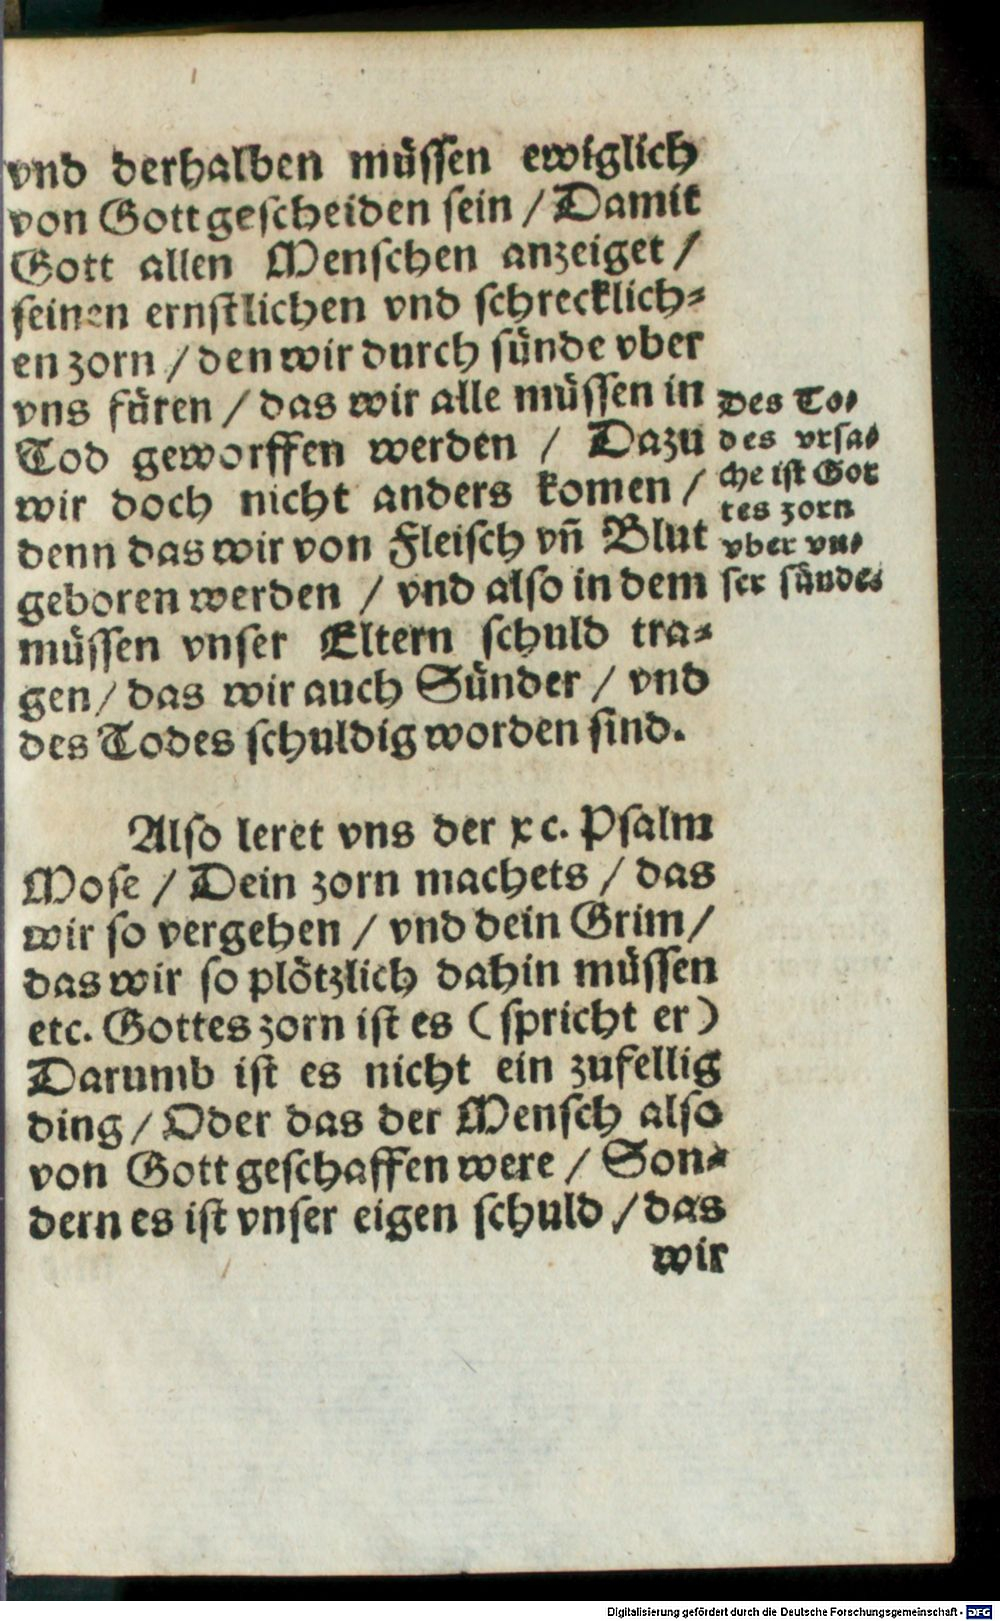 vnd derhalben müssen ewiglich
von Gott gescheiden sein / Damit
Gott allen Menschen anzeiget /
seinen ernstlichen vnd schrecklich⸗
en zorn / den wir durch sünde vber
vns füren / das wir alle müssen in
Tod geworffen werden / Dazu
wir doch nicht anders komen /
denn das wir von Fleisch vñ Blut
geboren werden / vnd also in dem
müssen vnser Eltern schuld tra⸗
gen / das wir auch Sünder / vnd
des Todes schuldig worden sind.
Des To⸗
des vrsa⸗
che ist Got
tes zorn
vber vn⸗
ser sünde.
Also leret vns der xc. Psalm
Mose / Dein zorn machets / das
wir so vergehen / vnd dein Grim /
das wir so plötzlich dahin müssen
etc. Gottes zorn ist es ( spricht er )
Darumb ist es nicht ein zufellig
ding / Oder das der Mensch also
von Gott geschaffen were / Son⸗
dern es ist vnser eigen schuld / das
wir
Digitalisierung gefördert durch die Deutsche Forschungsgemeinschaft - DFG